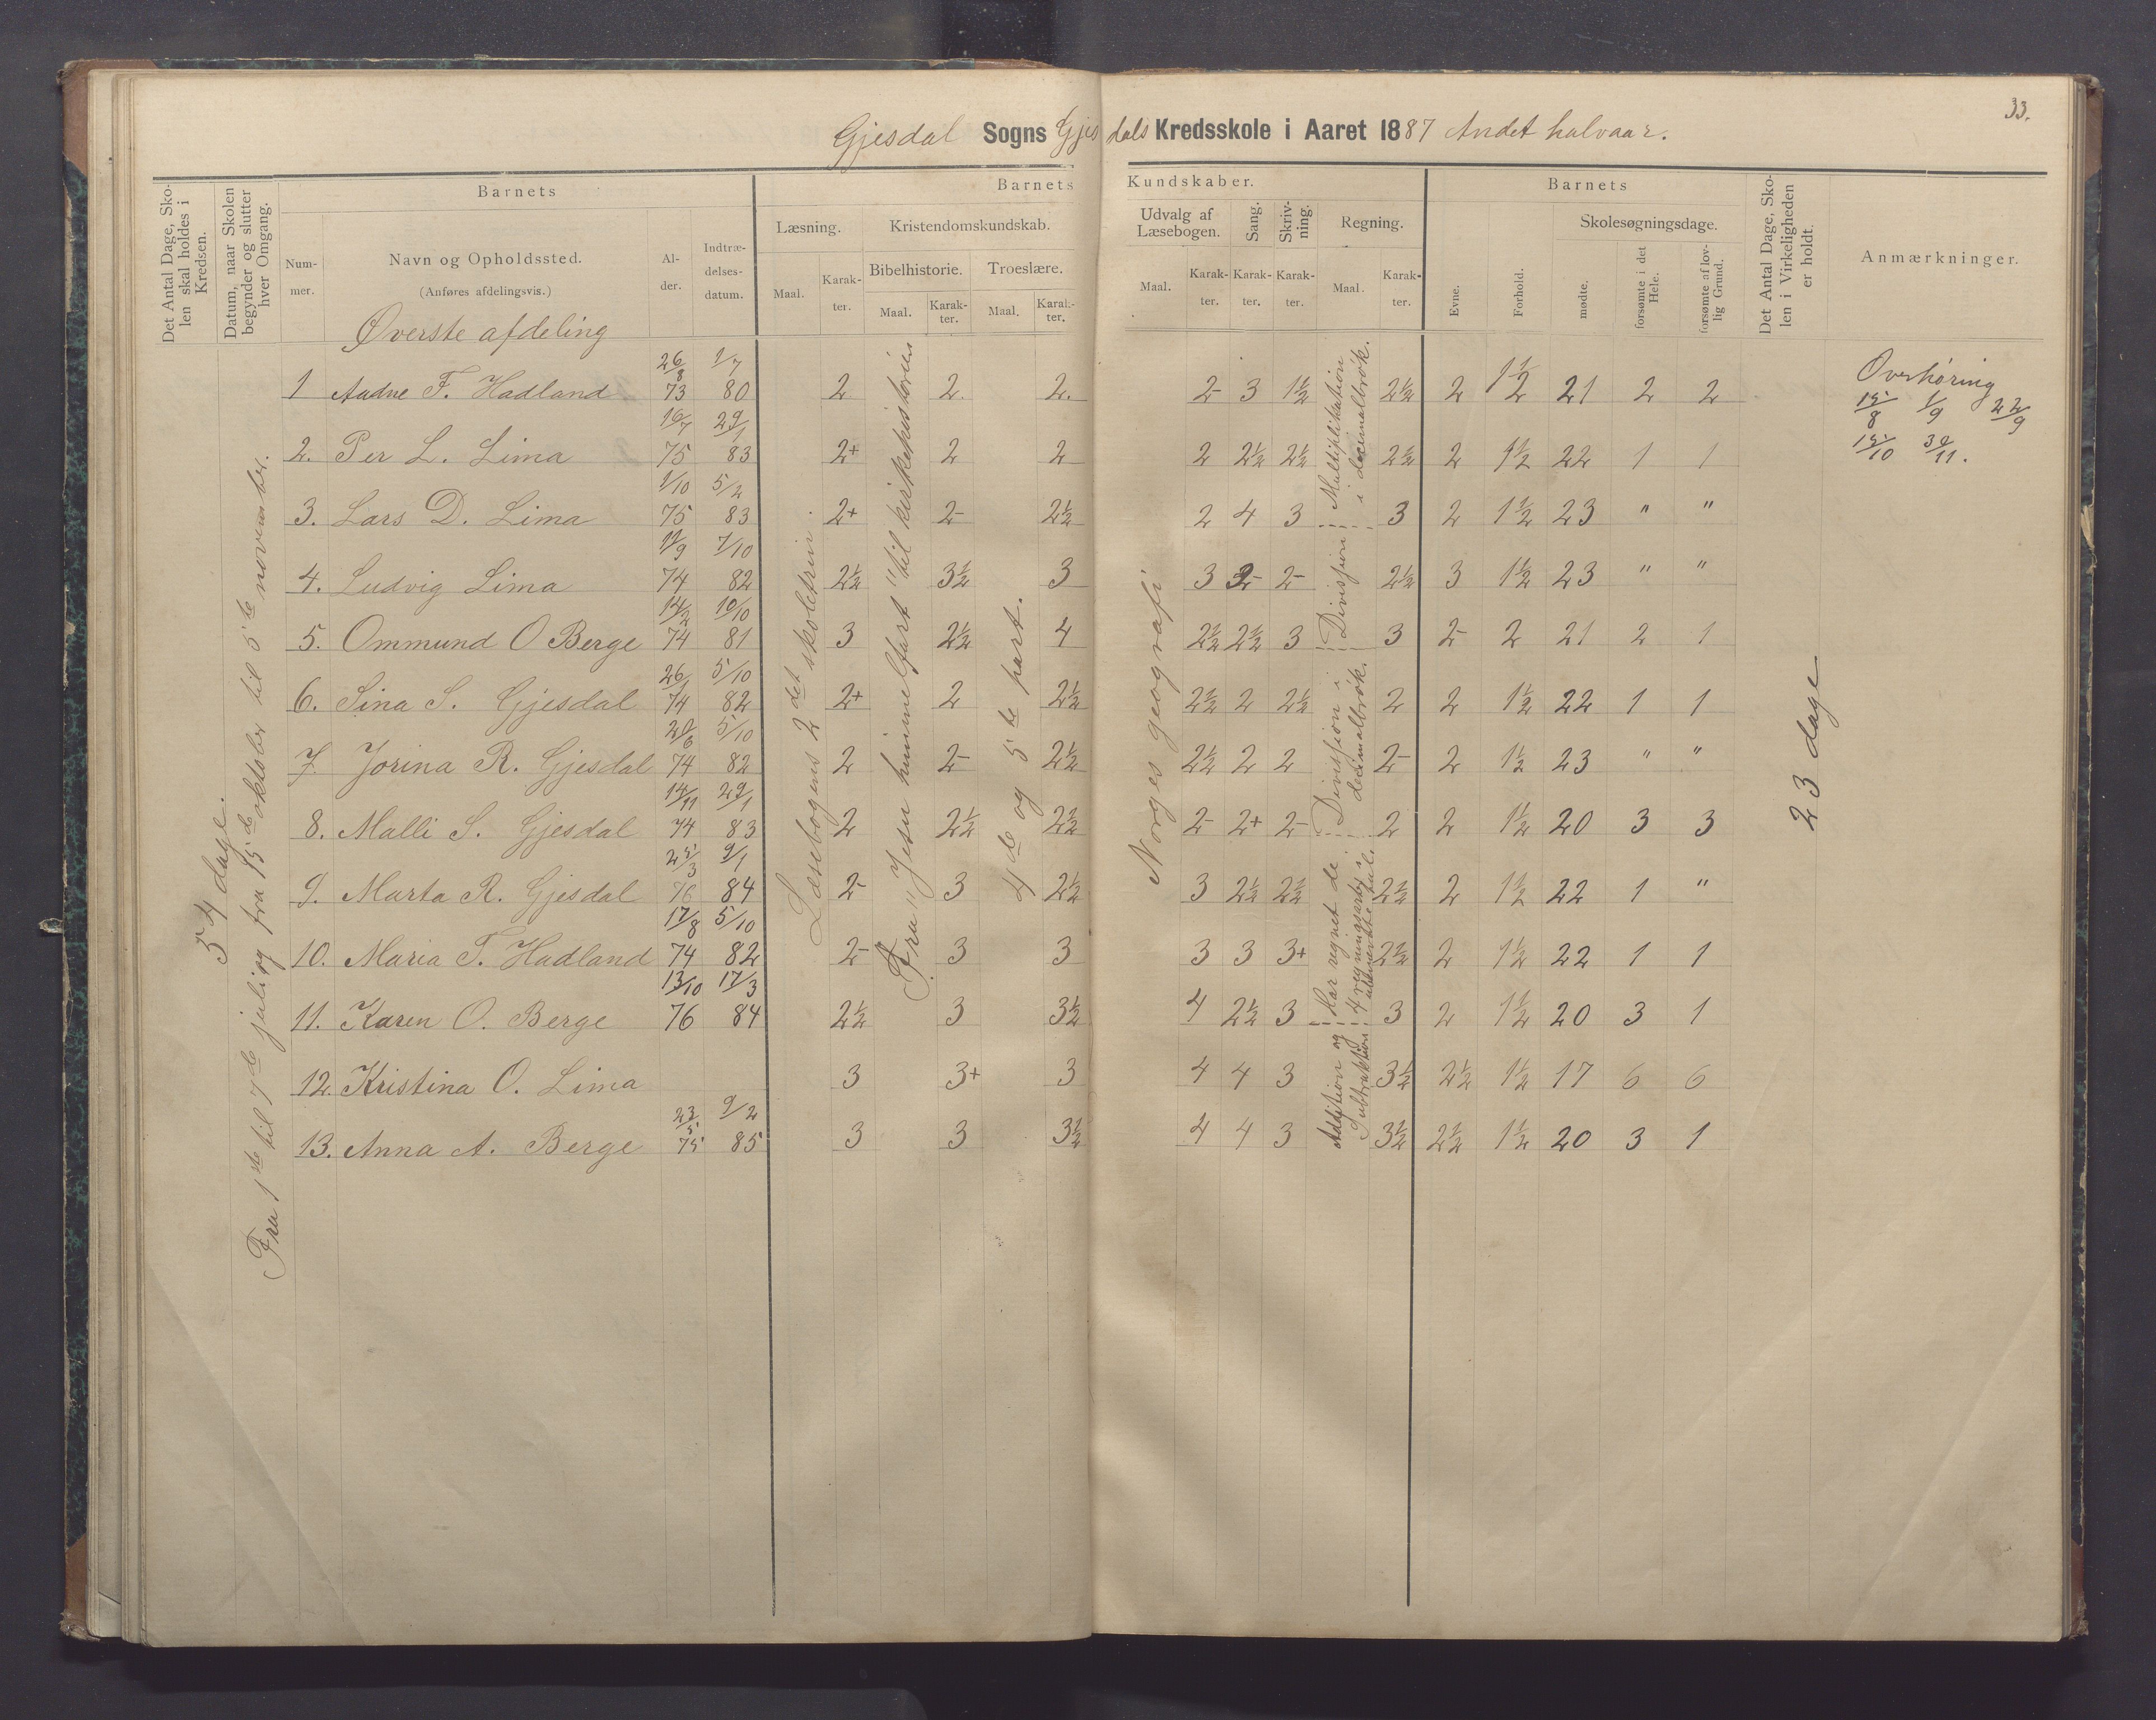 33.
Gjesdal Sogns Gjesdals Kredsskole i Aaret 1887 Andet halvaar.
Det Antal Dage, Skolen skal holdes i Kredsen.
Datum, naar Skolen begynder og slutter hver Omgang.
Barnets
Nummer.
Navn og Opholdssted.
(Anføres afdelingsvis.)
Alder.
Indtrædelsesdatum.
Barnets Kundskaber.
Læsning.
Maal. Karakter.
Kristendomskundskab.
Bibelhistorie.
Maal. Karakter.
Troeslære.
Maal. Karakter.
Udvalg af Læsebogen.
Maal. Karakter.
Sang.
Karakter.
Skrivning.
Karakter.
Regning.
Maal. Karakter.
Barnets
Evne.
Forhold.
Skolesøgningsdage.
mødte.
forsømte i det Hele.
forsømte af lovlig Grund.
Det Antal Dage, Skolen i Virkeligheden er holdt.
Anmærkninger.
Øverste afdeling
1 Audne F. Hadland 26/8 73 1/7 80 2 2. 2. 2- 3 1½ 2½ 2 1½ 21 2 2
2. Per L. Lima 16/7 75 29/1 83 2+ 2 2 2 2½ 2½ 2½ 2 1½ 22 1 1
3. Lars D. Lima 1/10 75 5/2 83 2+ 2- 2½ 2 4 3 3 2 1½ 23 " "
4. Ludvig Lima 12/9 74 7/10 82 2½ 3½ 3 3 2- 2- 2½ 3 1½ 23 " "
5. Ommund O Berge 14/2 74 10/10 81 3 2½ 4 2½ 2½ 3 3 2- 2 21 2 1
6. Sina S. Gjesdal 26/1 74 5/10 82 2+ 2 2½ 2½ 2 2½ 2 2 1½ 22 1 1
7. Jorina R. Gjesdal 20/6 74 5/10 82 2 2- 2½ 2½ 2 2 2- 2 1½ 23 " "
8. Malli S. Gjesdal 14/11 74 29/1 83 2 2½ 2½ 2- 2+ 2- 2 2 1½ 20 3 3
9. Marta R. Gjesdal 25/3 76 9/1 84 2- 3 2½ 3 2½ 2½ 2½ 2 1½ 22 1 "
10. Maria T. Hadland 17/8 74 5/10 82 2- 3 3 3 3 3+ 2½ 2 1½ 22 1 1
11. Karen O. Berge 13/10 76 17/3 84 2½ 3 3½ 4 2½ 3 3 2 1½ 20 3 1
12. Kristina O. Lima 3 3+ 3 4 4 3 3½ 2½ 1½ 17 6 6
13. Anna A. Berge 23/5 75 9/2 85 3 3 3½ 4 4 3 3½ 2½ 1½ 20 3 1
54 dage.
Fra 1ste til 7de juli og fra 15de oktober til 5te november.
Læsebogens 2det skoletrin
Fra "Jesu himmelfart" til kirkehistorien
4de og 5te part.
Norges geografi
Multiplikation i decimalbrøk.
Divisjon
Divisjon
Divisjon i decimalbrøk.
Har regnet de 4 regningsarter i ubenævnte tal.
Addition og Subtraktion
23 dage
Overhøring
15/8 1/9 22/9
15/10 30/11.